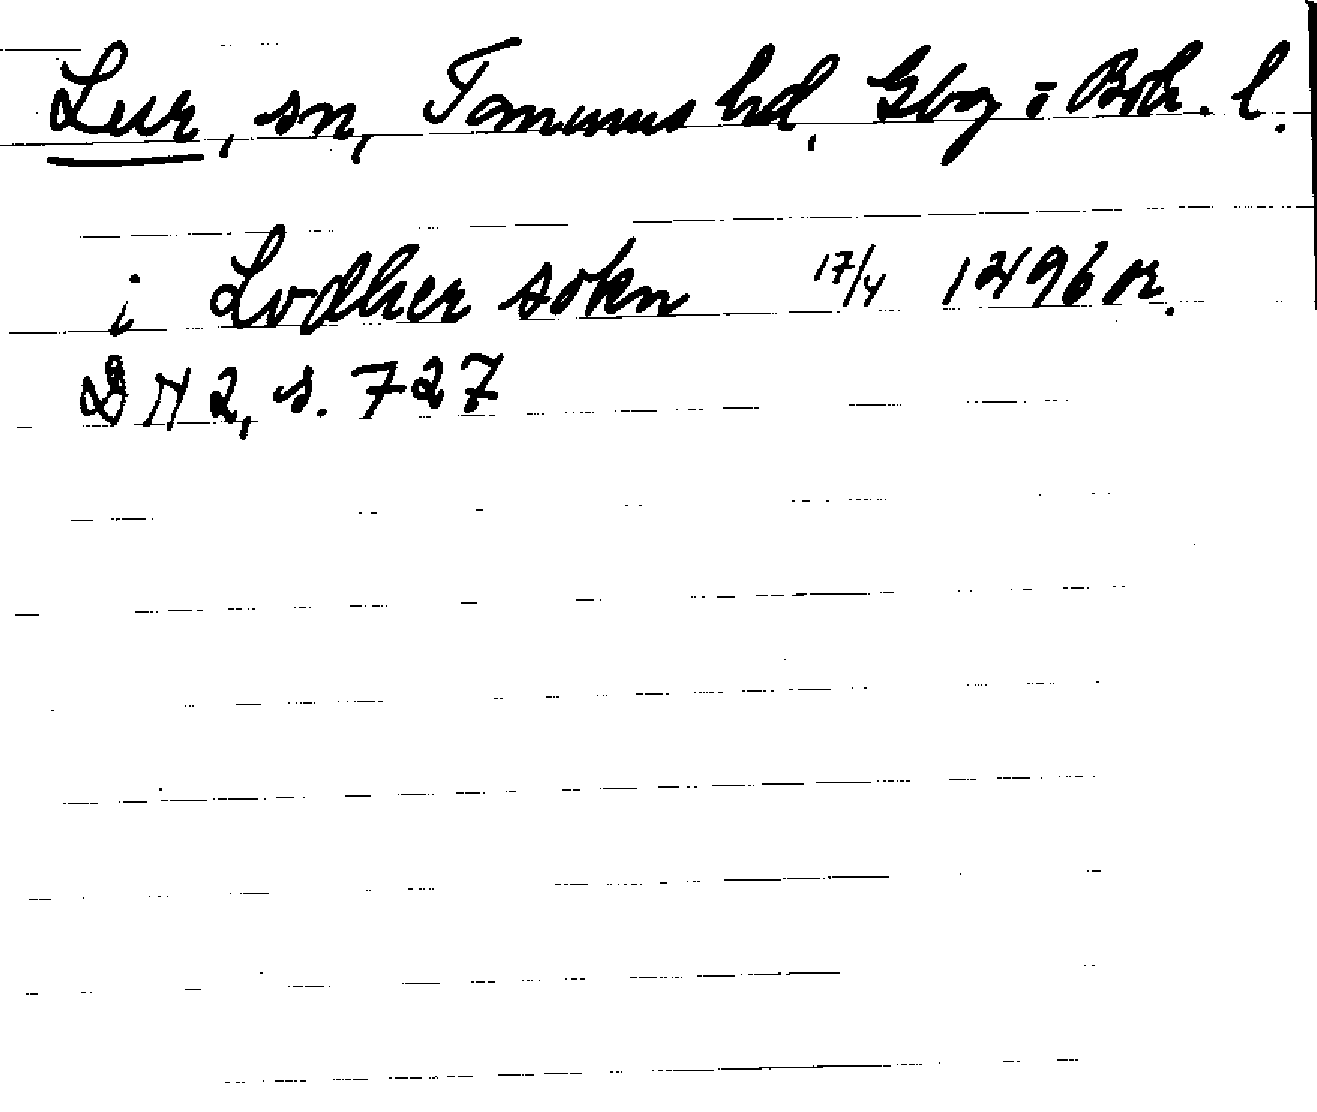 Lur, sn, Tanums hd, Gbg o Boh. l.
i Lodher sokn 17/4 1496 or.
DN 2, s. 727